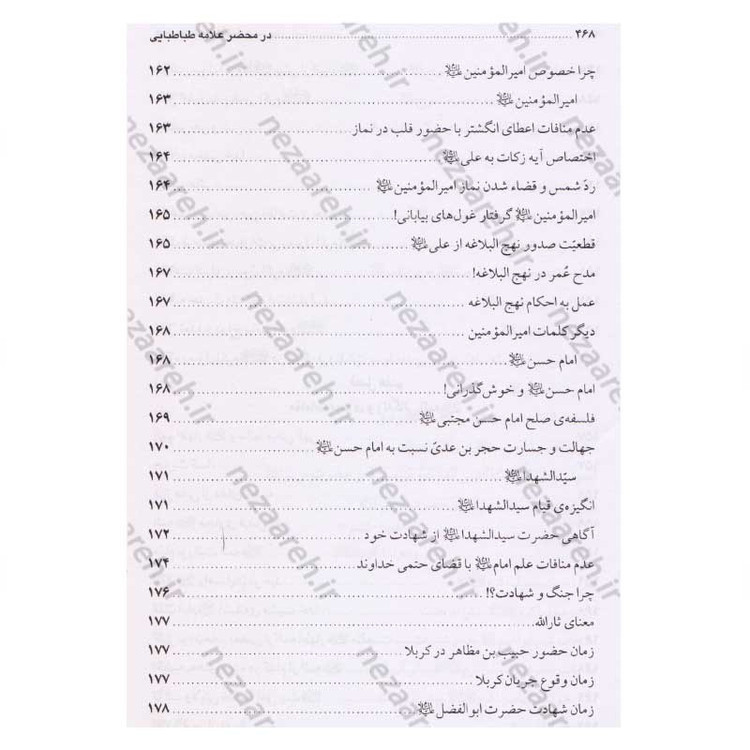 ۴۶۸ ........ در محضر علامه طباطبایی
چرا خصوص امیرالمؤمنین؏ ........ ۱۶۲
امیرالمؤمنین؏ ........ ۱۶۳
عدم منافات اعطای انگشتر با حضور قلب در نماز ........ ۱۶۳
اختصاص آیه زکات به علی؏ ........ ۱۶۴
ردّ شمس و قضاء شدن نماز امیرالمؤمنین؏ ........ ۱۶۴
امیرالمؤمنین؏ گرفتار غول‌های بیابانی! ........ ۱۶۵
قطعیّت صدور نهج البلاغه از علی؏ ........ ۱۶۵
مدح عُمر در نهج البلاغه! ........ ۱۶۷
عمل به احکام نهج البلاغه ........ ۱۶۷
دیگر کلمات امیرالمؤمنین ........ ۱۶۸
امام حسن؏ ........ ۱۶۸
امام حسن؏ و خوش‌گذرانی! ........ ۱۶۸
فلسفه‌ی صلح امام حسن مجتبی؏ ........ ۱۶۹
جهالت و جسارت حجر بن عدیّ نسبت به امام حسن؏ ........ ۱۷۰
سیّدالشهدا؏ ........ ۱۷۱
انگیزه‌ی قیام سیدالشهدا؏ ........ ۱۷۱
آگاهی حضرت سیدالشهدا؏ از شهادت خود ........ ۱۷۲
عدم منافات علم امام؏ با قضای حتمی خداوند ........ ۱۷۴
چرا جنگ و شهادت؟! ........ ۱۷۶
معنای ثارالله ........ ۱۷۷
زمان حضور حبیب بن مظاهر در کربلا ........ ۱۷۷
زمان وقوع جریان کربلا ........ ۱۷۷
زمان شهادت حضرت ابوالفضل؏ ........ ۱۷۸
nezaareh.ir